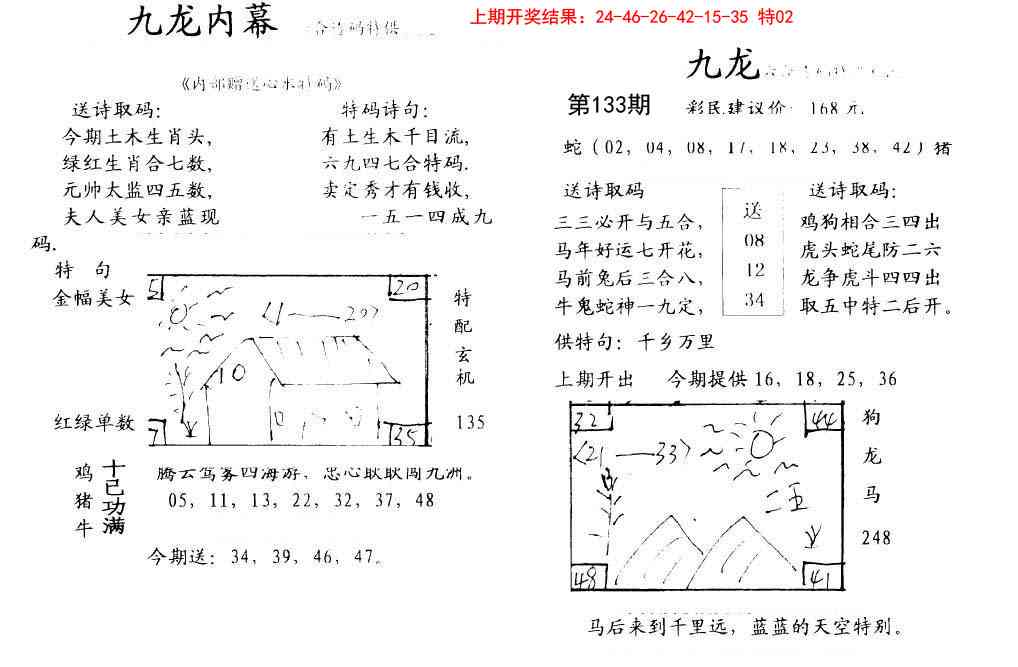 上期开奖结果：24-46-26-42-15-35 特02
九龙内幕
送诗取码：
今期土木生肖头，
绿红生肖合七数，
元帅太监四五数，
夫人美女亲蓝现
码.
特码诗句：
有土生木千目流，
六九四七合特码.
卖定秀才有钱收，
一五一四成九
特 句
金幅美女
红绿单数
5
20
〈1——20〉
10
7
35
特
配
玄
机
135
鸡
猪
牛
十已功满
腾云驾雾四海游，忠心耿耿闯九洲。
05，11，13，22，32，37，48
今期送：34，39，46，47。
九龙
第133期
彩民建议价：168元.
蛇（02，04，08，17，18，23，38，42）猪
送诗取码
三三必开与五合，
马年好运七开花，
马前兔后三合八，
牛鬼蛇神一九定，
送
08
12
34
送诗取码：
鸡狗相合三四出
虎头蛇尾防二六
龙争虎斗四四出
取五中特二后开。
供特句：千乡万里
上期开出 今期提供16，18，25，36
32
44
〈21——33〉
二五
48
41
狗
龙
马
248
马后来到千里远，蓝蓝的天空特别。